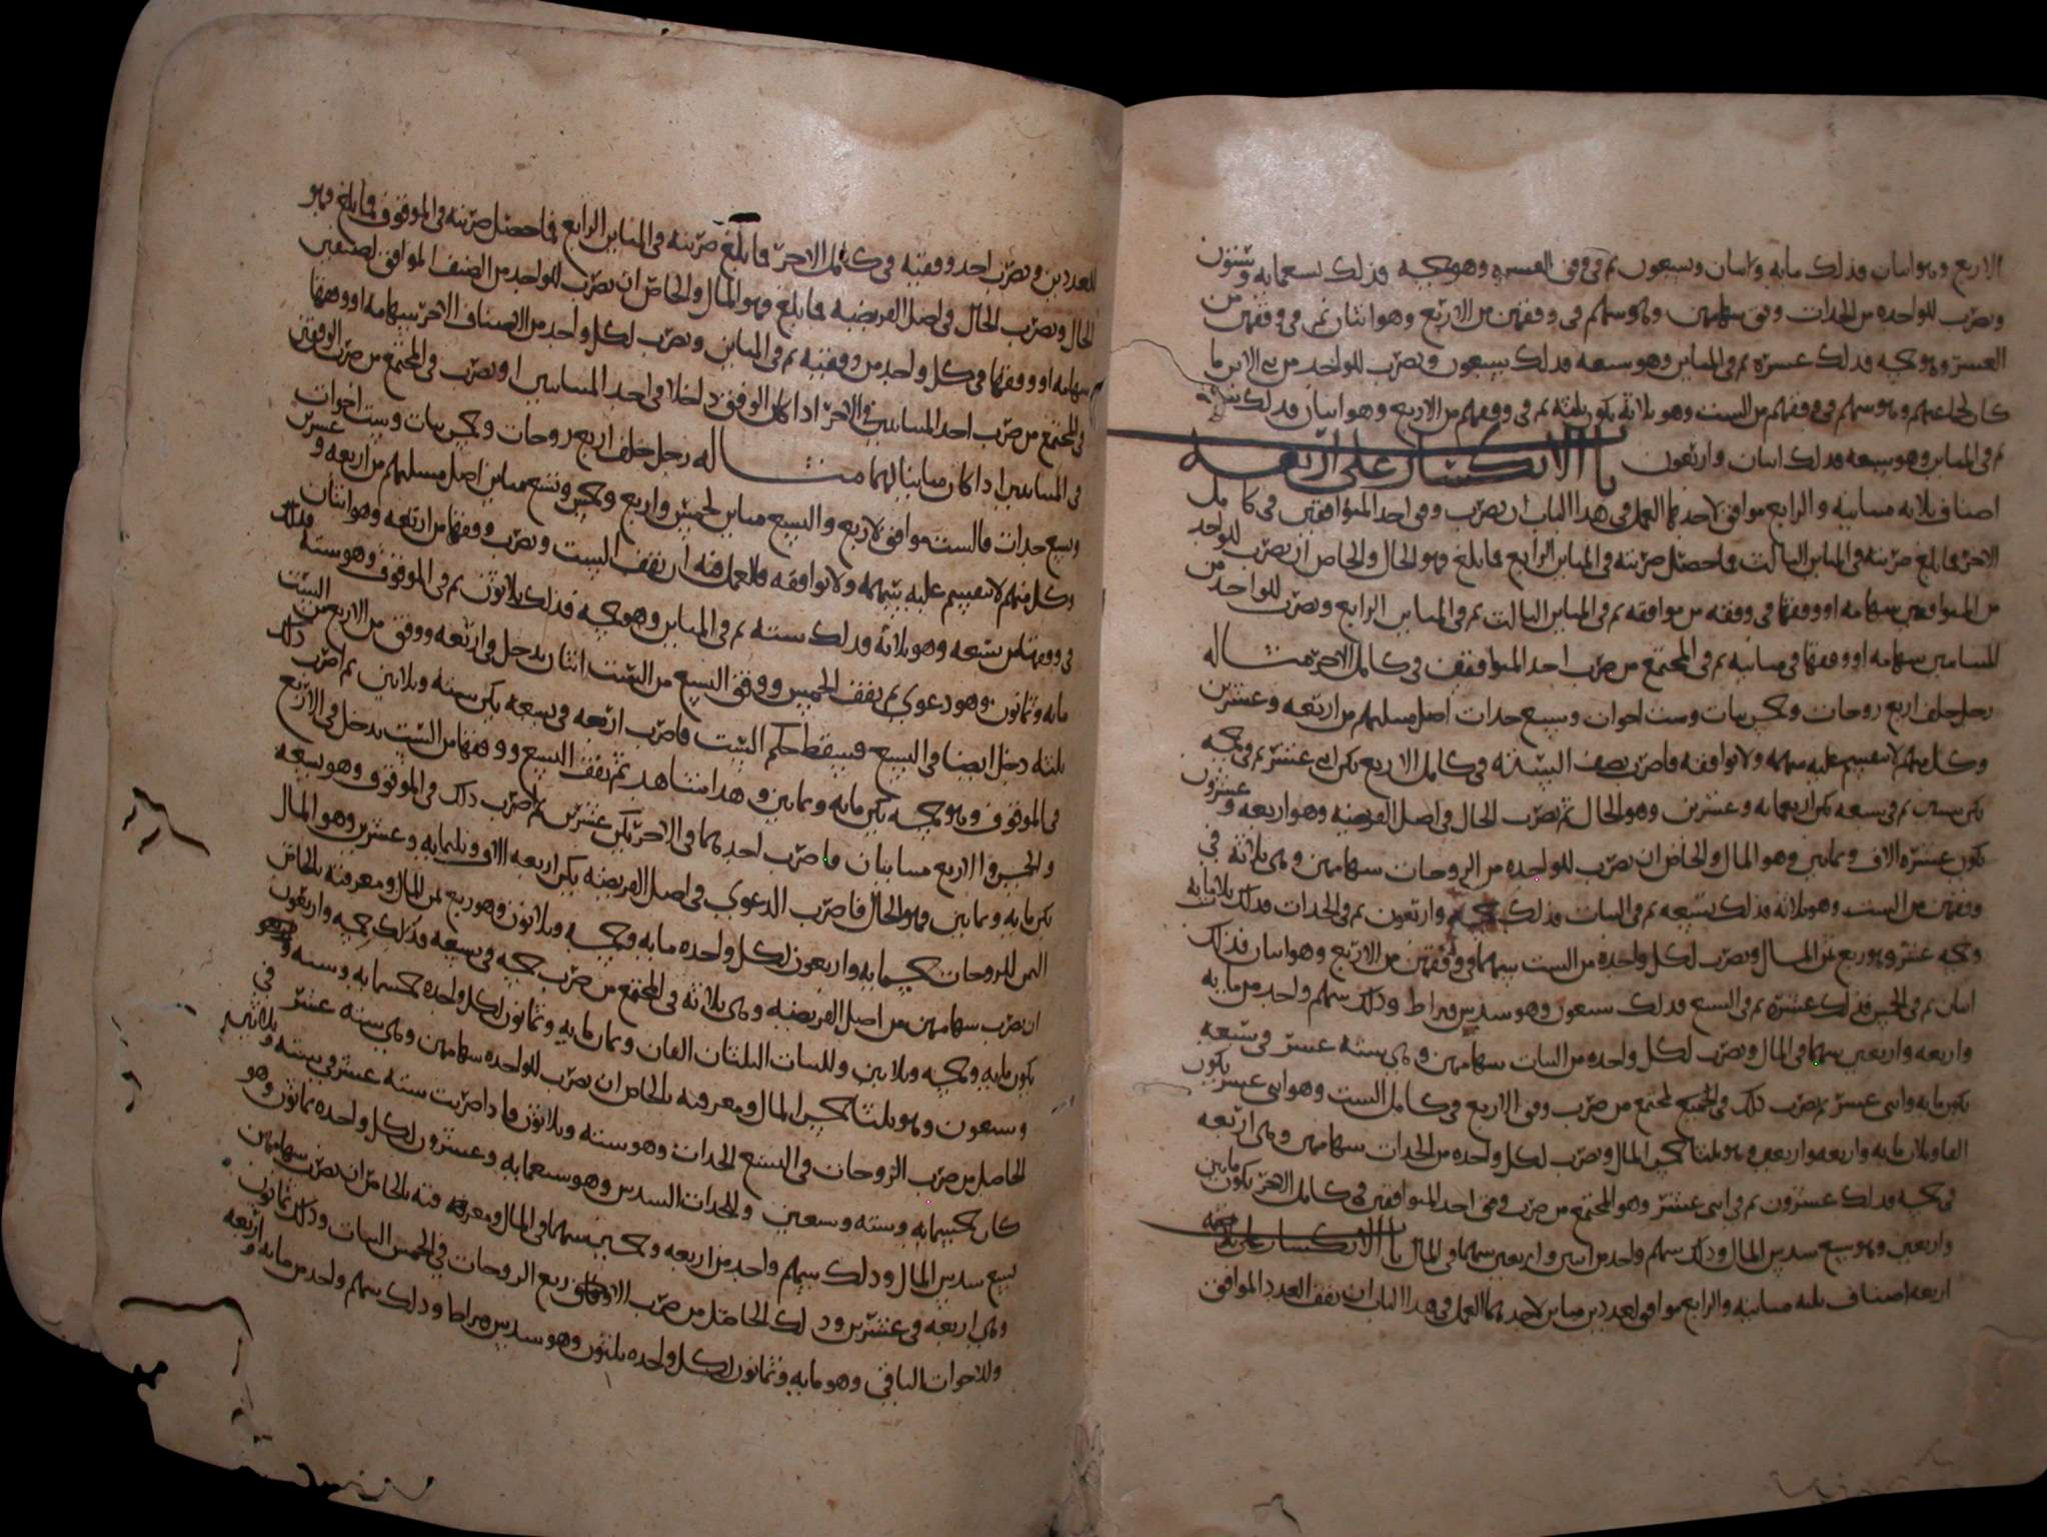 الاربع وهو اسان فذلك مايه واسان وسبعون ثم في وفق العسره وهو خمسه فذلك تسعمايه وستون
وتضرب للواحده من الجدات وفق سهامهن وهو سهم في وفقهن من الاربع وهو اثنان ثم في وفقهن من
العشر وهو خمسه فذلك عشره ثم في المباين وهو سبعه فذلك سبعون وتضرب للواحد من بني الابن ما
كان لجماعتهم وهو سهم في وفقهم من الست وهو ثلاثة يكون ثلثه ثم في وفقهم من الاربع وهو اسان فذلك سته
ثم في المباين وهو سبعه فذلك اسان واربعون باب الانكسار على اربعه
اصناف ثلاثه متباينه والرابع موافق لاحدهما العمل في هذا الباب ان تضرب وفق احد المتوافقين في كامل
الاخر فما بلغ ضربته في المباين الثالث فما حصل ضربته في المباين الرابع فما بلغ وهو الحال والخاص ان تضرب للواحد
من المتوافقين سهامه او وفقها في وفقه من موافقه ثم في المباين الثالث ثم في المباين الرابع وتضرب للواحد من
المتباينين سهامه او وفقها في مباينه ثم في المجتمع من ضرب احد المتوافقين في كامل الاخر مثاله
رجل خلف اربع زوجات وخمس بنات وست اخوات وسبع جدات اصل مسلتهم من اربعه وعشرين
وكل منهم لا ينقسم عليه سهمه ولا توافقه فاضرب نصف الستة في كامل الاربع يكن اثني عشر ثم في خمسه
يكن ستين ثم في سبعه يكن اربعمايه وعشرين وهو الحال ثم تضرب الحال في اصل الفريضه وهو اربعه وعشرون
يكون عشره الاف وثمانين وهو المال والخاص ان تضرب للواحده من الزوجات سهامهن وهي ثلاثة في
وفقهن من الست وهو ثلاثة فذلك تسعه ثم في البنات فذلك خمسه واربعون ثم في الجدات فذلك ثلاثمايه
وخمسه عشر وهو ربع ثمن المال وتضرب لكل واحده من الست سهمها في وفقهن من الاربع وهو اسان فذلك
اسان ثم في الخمس فذلك عشرة ثم في السبع فذلك سبعون وهو سدس قيراط وذلك سهم واحد من مايه
واربعه واربعين سهما في المال وتضرب لكل واحده من البنات سهامهن وهي ستة عشر في سبعه
يكون مايه واثني عشر ثم تضرب ذلك في المجتمع من ضرب وفق الاربع في كامل الست وهو اثني عشر يكون
الفا وثلاثمايه واربعه واربعين وهو ثلثا خمس المال وتضرب لكل واحده من الجدات سهامهن وهي اربعه
في خمسه فذلك عشرون ثم في اثني عشر وهو المجتمع من ضرب وفق احد المتوافقين في كامل الاخر يكون مايتين
واربعين وهو سبع سدس المال وذلك سهم واحد من اثنين واربعين سهما في المال باب الانكسار على
اربعه اصناف ثلثه متباينه والرابع موافق لعددين مباين لاحدهما العمل في هذا الباب ان تقف العدد الموافق
للعددين وتضرب احد وفقيه في كامل الاخر فما بلغ ضربته في المباين الرابع فما حصل ضربته في الموقوف فما بلغ فهو
الحال وتضرب الحال في اصل الفريضه فما بلغ فهو المال والخاص ان تضرب للواحد من الصنف الموافق لصنفين
سهامه او وفقها في كل واحد من وفقيه ثم في المباين وتضرب لكل واحد من الاصناف الاخر سهامه او وفقها
في المجتمع من ضرب احد المتباينين في الاخر اذا كان الوفق داخلا في احد المتباينين او تضرب في المجتمع من ضرب الوفقين
في المتباينين اذا كان مباينا لهما مثاله رجل خلف اربع زوجات وخمس بنات وست اخوات
وسبع جدات فالست موافق لاربع والسبع مباين لخمس واربع وخمس وتسع مباين اصل مسلتهم من اربعه وعشرين
وكل منهم لا ينقسم عليه سهمه ولا توافقه فالعمل فيه ان تقف الست وتضرب وفقها من اربعه وهو اثنان
في وفقها من تسعه وهو ثلاثة فذلك سته ثم في المباين وهو خمسه فذلك ثلاثون ثم في الموقوف وهو سته فذلك
مايه وثمانون وهو دعوي ثم تقف الخمس ووفق التسع من الست اثنان يدخل في اربعه ووفق من الاربع من الست
ثلثه دخل ايضا في التسع فيسقط حكم الست فاضرب اربعه في تسعه يكن سته وثلاثين ثم اضرب ذلك
في الموقوف وهو خمسه يكن مايه وثمانين وهذا مشاهد ثم تقف التسع ووفقها من الست يدخل في الاربع
والخمس والاربع متباينان فاضرب احدهما في الاخر يكن عشرين ثم اضرب ذلك في الموقوف وهو تسعه
يكن مايه وثمانين وهو الحال فاضرب الدعوي في اصل الفريضه يكن اربعه الاف وثلثمايه وعشرين وهو المال
الثمن للزوجات خمسمايه واربعون لكل واحده مايه وخمسه وثلاثون وهو ربع ثمن المال ومعرفته بالخاص
ان تضرب سهامهن من اصل الفريضه وهي ثلاثة في المجتمع من ضرب خمسه في تسعه فذلك خمسه واربعون
يكون مايه وخمسه وثلاثين وللبنات الثلثان الفان وثمان مايه وثمانون لكل واحده خمسمايه وسته
وسبعون وهو ثلثا خمس المال ومعرفته بالخاص ان تضرب للواحده سهامهن وهي سته عشر في
الحاصل من ضرب الزوجات في التسع الجدات وهو سته وثلاثون فاذا ضربت سته عشر في سته وثلاثين
كان خمسمايه وسته وسبعين وللجدات السدس وهو سبعمايه وعشرون لكل واحده ثمانون وهو
تسع سدس المال وذلك سهم واحد من اربعه وخمسين سهما في المال ومعرفته بالخاص ان تضرب سهامهن
وهي اربعه في عشرين وذلك الحاصل من ضرب الاربع الزوجات في الخمس البنات وذلك ثمانون
وللاخوات الباقي وهو مايه وثمانون لكل واحده ثلثون وهو سدس قيراط وذلك سهم واحد من مايه واربعه